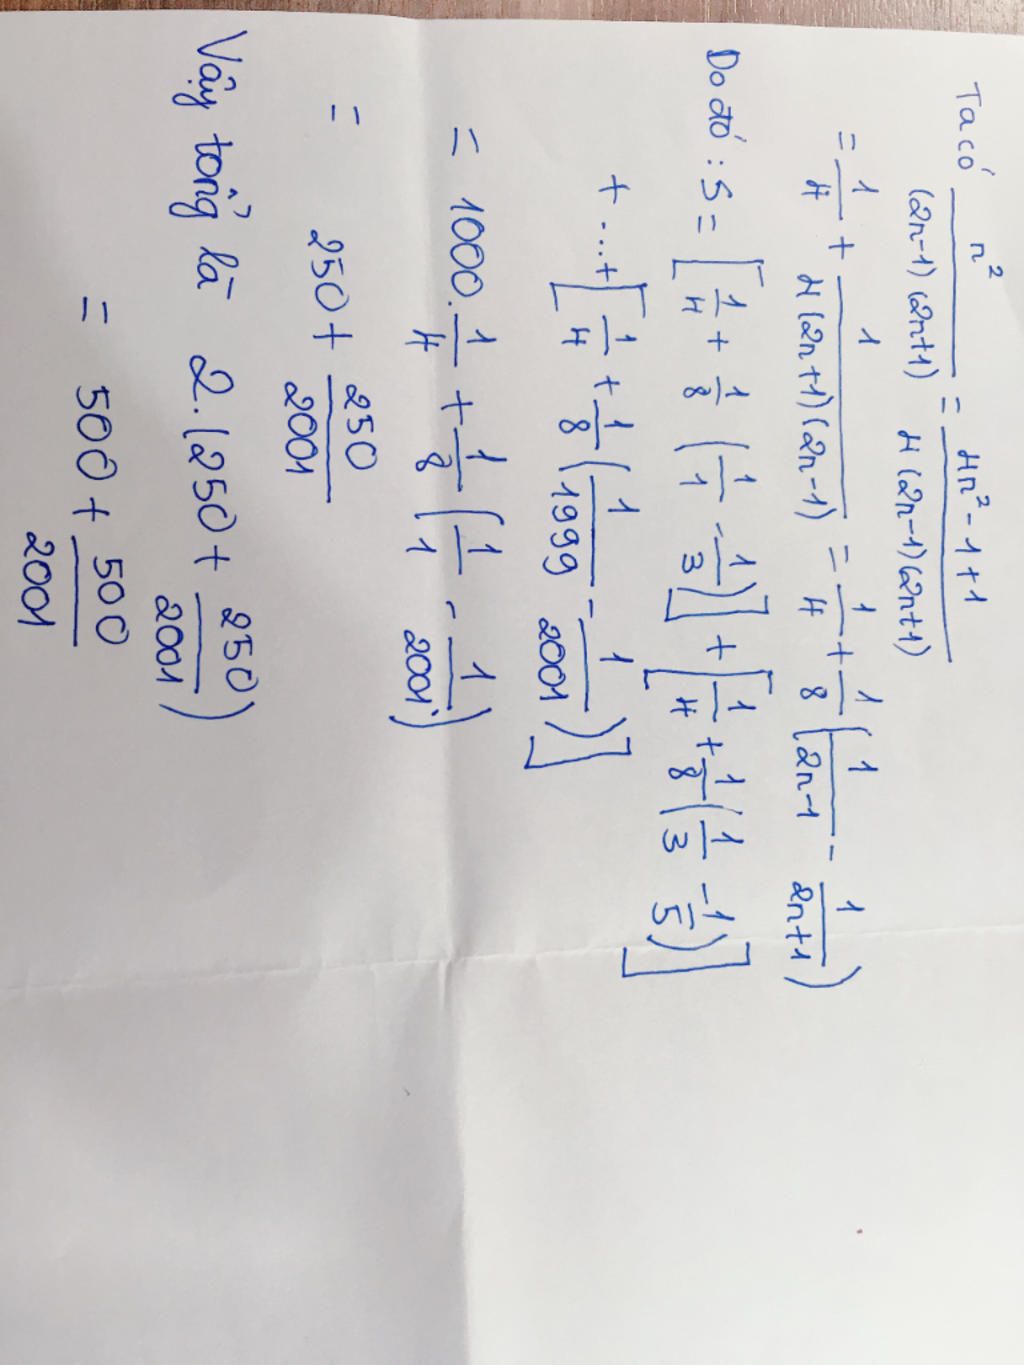 Ta có n²/((2n-1)(2n+1)) = (4n²-1+1)/(4(2n-1)(2n+1))
= 1/4 + 1/(4(2n+1)(2n-1)) = 1/4 + 1/8 (1/(2n-1) - 1/(2n+1))
Do đó : S = [1/4 + 1/8 (1/1 - 1/3)] + [1/4 + 1/8 (1/3 - 1/5)]
+ ...+ [1/4 + 1/8 (1/1999 - 1/2001)]
= 1000. 1/4 + 1/8 (1/1 - 1/2001)
= 250 + 250/2001
Vậy tổng là 2.(250 + 250/2001)
= 500 + 500/2001